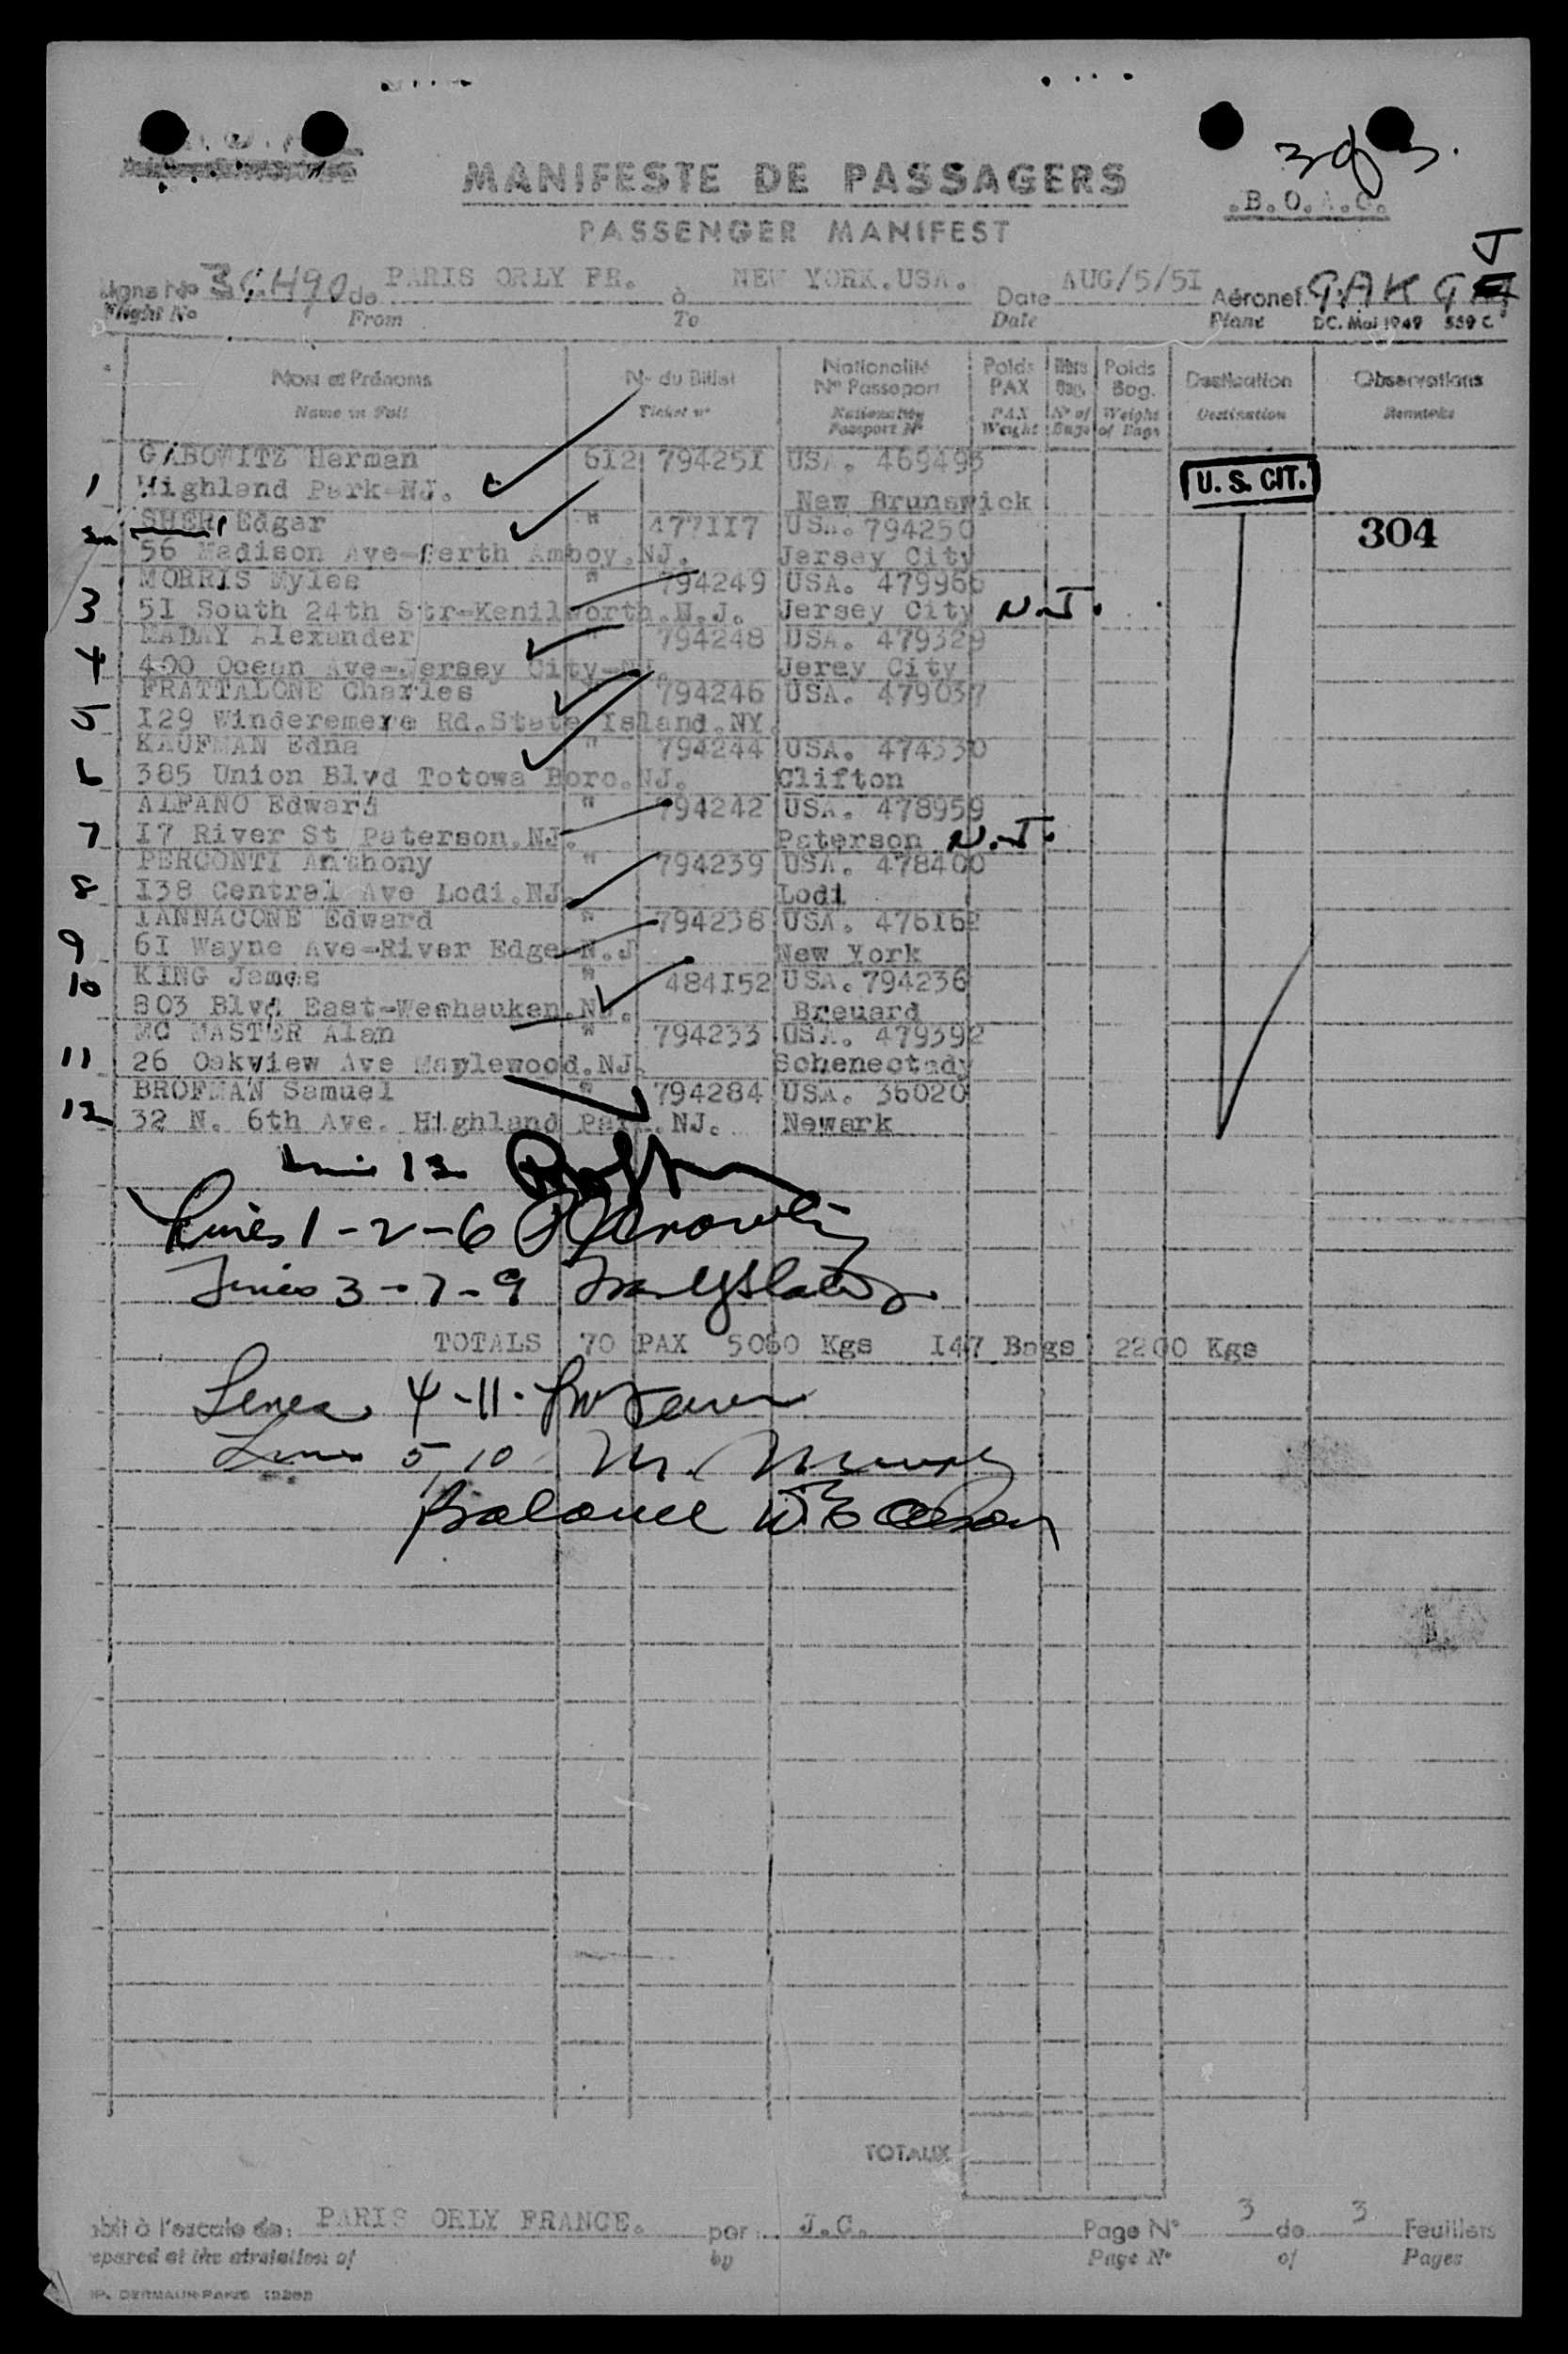 3 of 3.
MANIFESTE DE PASSAGERS
.B.O.A.C.
PASSENGER MANIFEST
J
Ligne No de PARIS ORLY FR. à NEW YORK.USA. Date AUG/5/5I Aéronef GAKG
Flight No From To Date Plane DC. Mai 1949 559 C
Nom et Prénoms Nº du Billet Nationalité Nº Passeport Poids PAX Nbre Bag. Poids Bag. Destination Observations
Name in Full Ticket nº Nationality Passport Nº PAX Weight Nº of Bags Weight of Bags Destination Remarks
GABOWITZ Herman 612 79425I USA. 469493
1 Highland Park-NJ. New Brunswick U. S. CIT.
SHER, Edgar " 477II7 USA. 794250 304
2 56 Madison Ave-Perth Amboy.NJ. Jersey City
MORRIS Myles " 794249 USA. 479966
3 5I South 24th Str-Kenilworth.N.J. Jersey City N.J.
MADAY Alexander " 794248 USA. 479329
4 400 Ocean Ave-Jersey City-NJ. Jerey City
FRATTALONE Charles 794246 USA. 479037
5 I29 Winderemere Rd.State Island.NY.
KAUFMAN Edna " 794244 USA. 474330
6 385 Union Blvd Totowa Boro.NJ. Clifton
ALFANO Edward " 794242 USA. 478959
7 I7 River St Paterson.NJ. Paterson N.J.
PERCONTI Anthony " 794239 USA. 478400
8 I38 Central Ave Lodi.NJ Lodi
IANNACONE Edward " 794238 USA. 476I62
9 6I Wayne Ave-River Edge-N.J New York
10 KING James " 484I52 USA. 794236
803 Blvd East-Weehauken.NJ. Breuard
MC MASTER Alan " 794233 USA. 479392
11 26 Oakview Ave Maplewood.NJ. Schenectady
BROFMAN Samuel " 794284 USA. 36020
12 32 N. 6th Ave. Highland Park.NJ. Newark
12
Lines 1-2-6
Lines 3-7-9
TOTALS 70 PAX 5060 Kgs I47 Bags 2200 Kgs
Lines 4-11-
Lines 5,10 M.
Balance
TOTAUX
PARIS ORLY FRANCE. par: J.C. Page Nº 3 de 3 Feuillets
by Page Nº of Pages